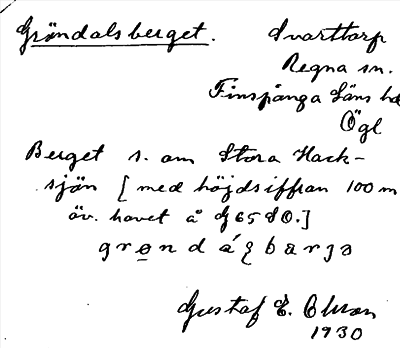 Gröndalsberget.
Svarttorp
Regna sn.
Finspånga läns hd
Ögl
Berget s. om Stora Hack-
sjön [med höjdsiffran 100 m
öv. havet å G 65 S O.]
Gustaf E. Olsson
1930